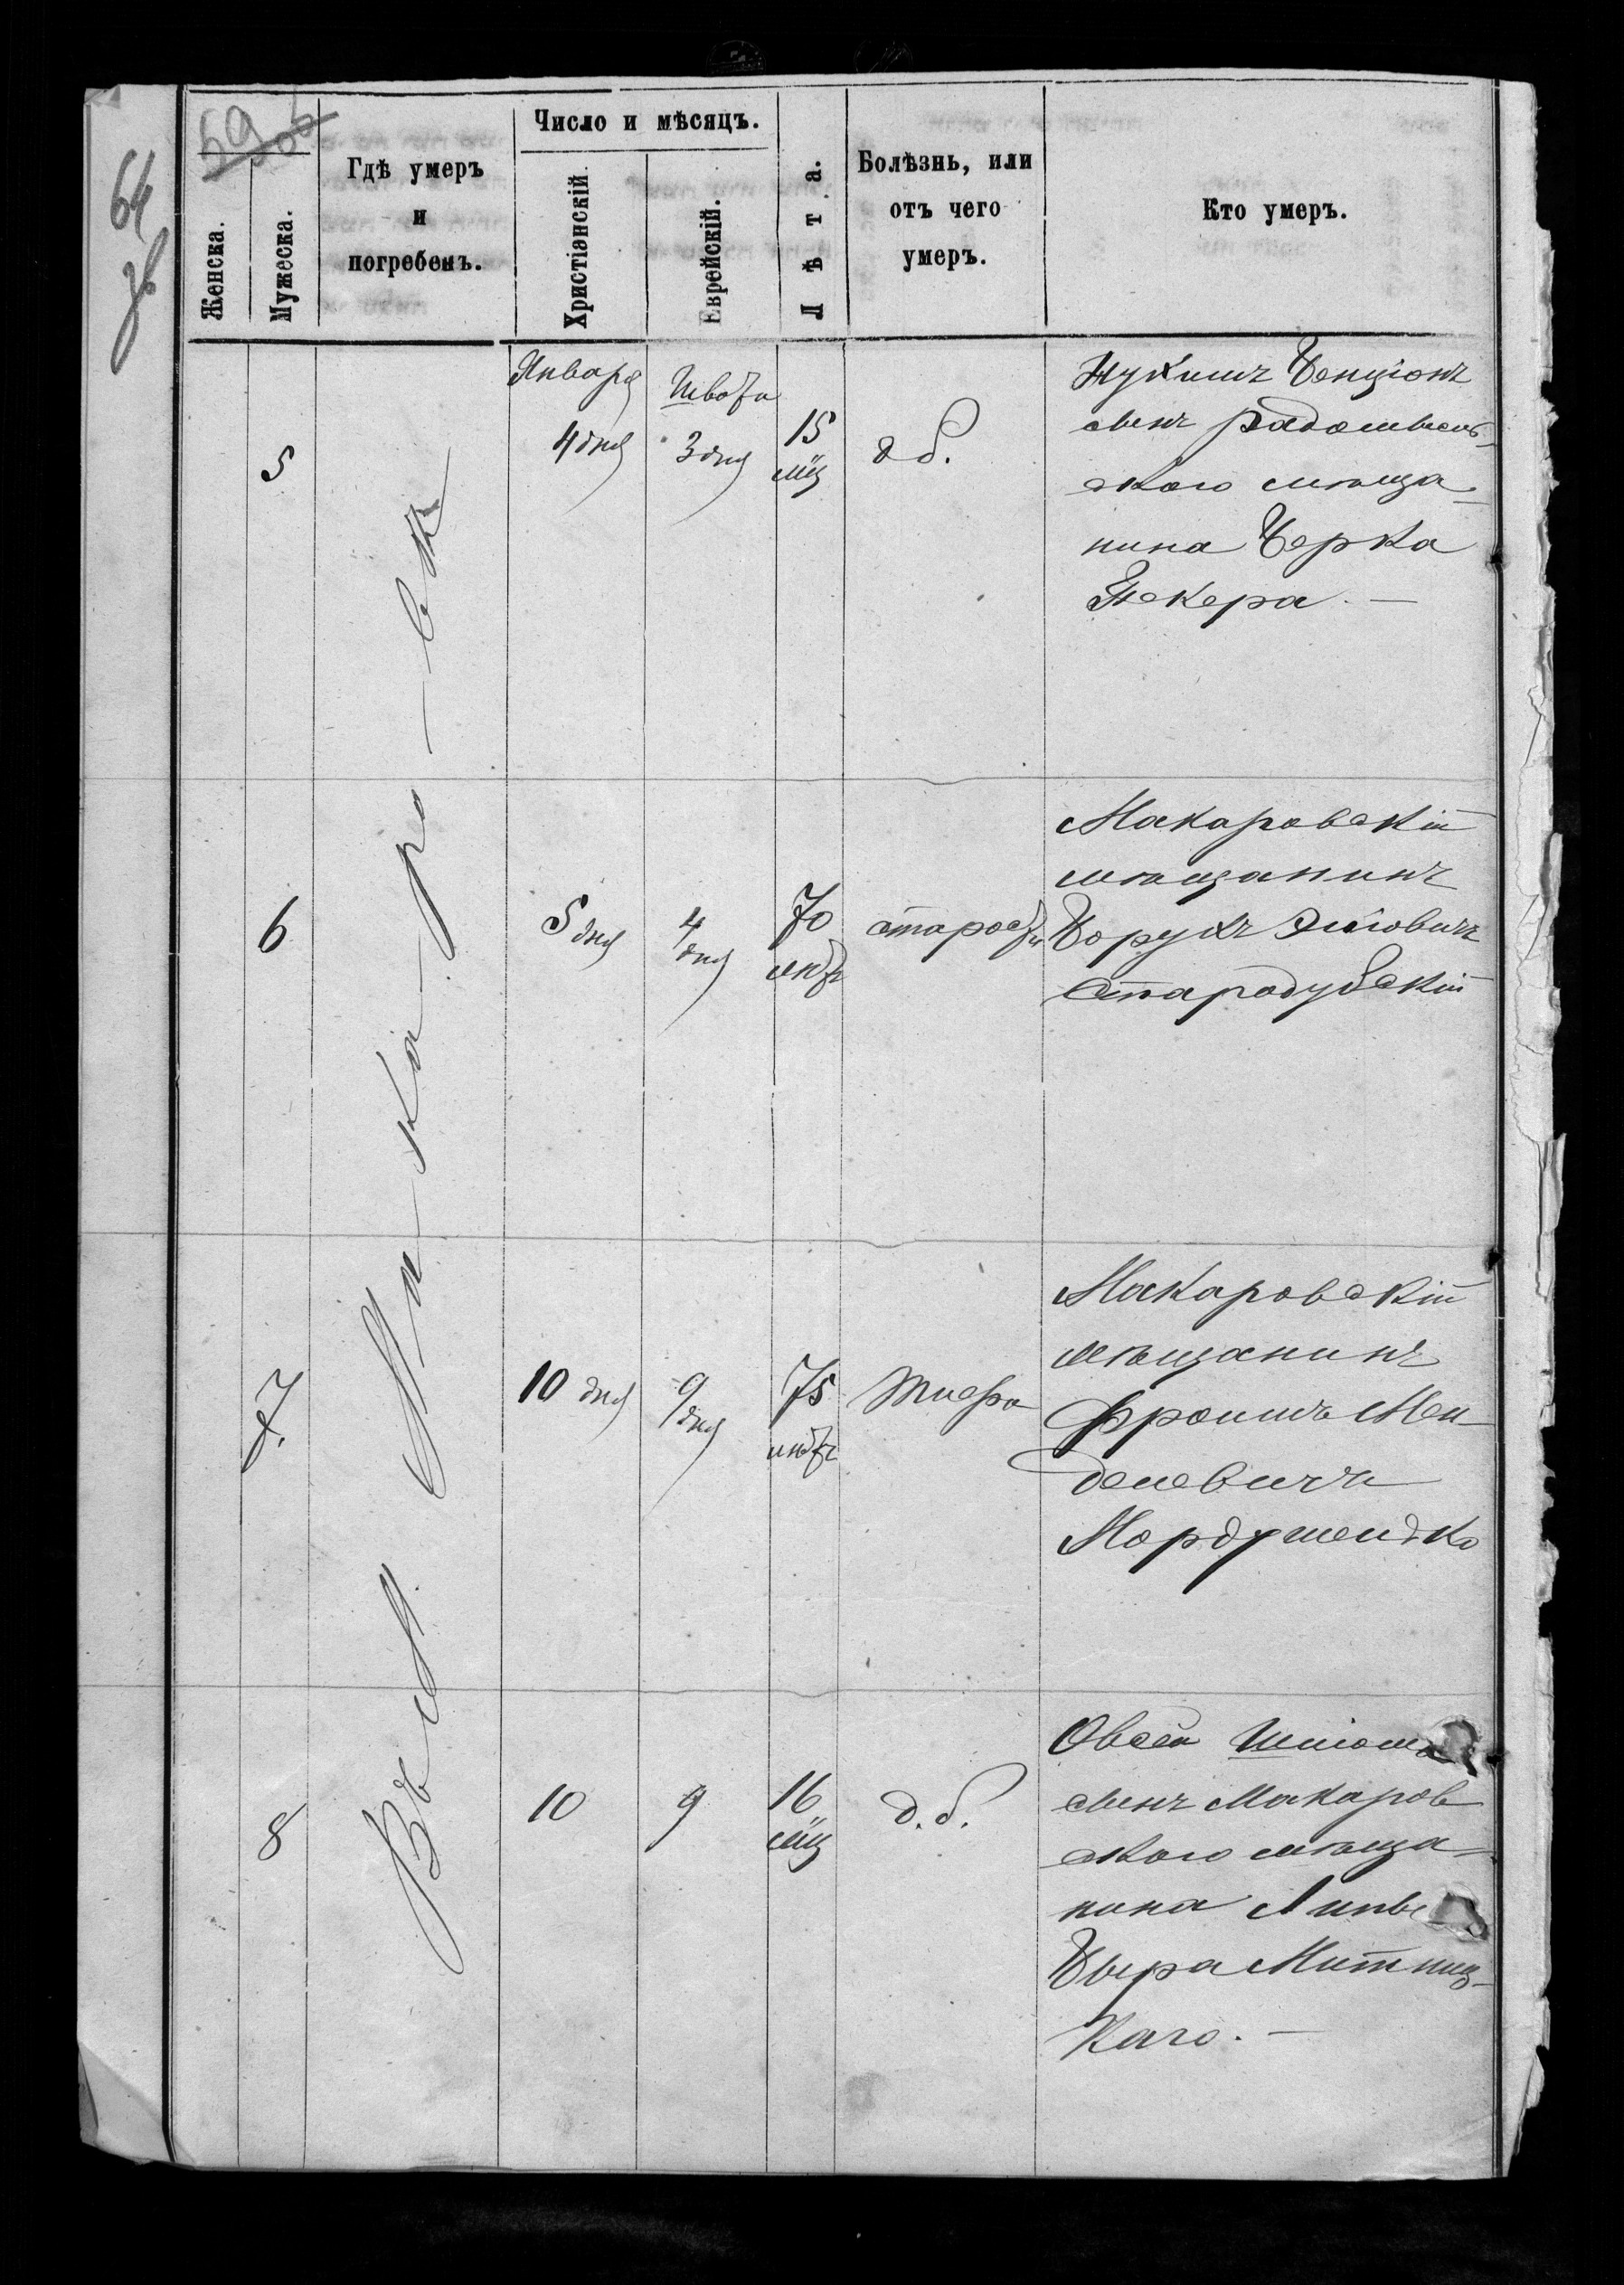 59 об
64
зв
Женска.
Мужеска.
Гдѣ умеръ
и
погребенъ.
Число и мѣсяцъ.
Христіянскій
Еврейскій.
Лѣта.
Болѣзнь, или
отъ чего
умеръ.
Кто умеръ.
Въ М. Ма-ка-ро-вѣ
5
Января
4 дня
Швата
3 дня
15
мц
д б.
Нухимъ Бенціонъ
сынъ Радомысль-
скаго мѣща-
нина Берка
Пекера. —
6
5 дня
4
дня
70
лѣтъ
старости
Макаровскій
мѣщанинъ
Борухъ Эліовичъ
Стародубскій
7.
10 дня
9
дня
75
лѣтъ
тифа
Макаровскій
мѣщанинъ
Фроимъ Мен-
делевичъ
8
10
9
16
мц
д. б.
Овсей
сынъ Макаров
скаго мѣща-
нина
Мит ниц-
каго. —